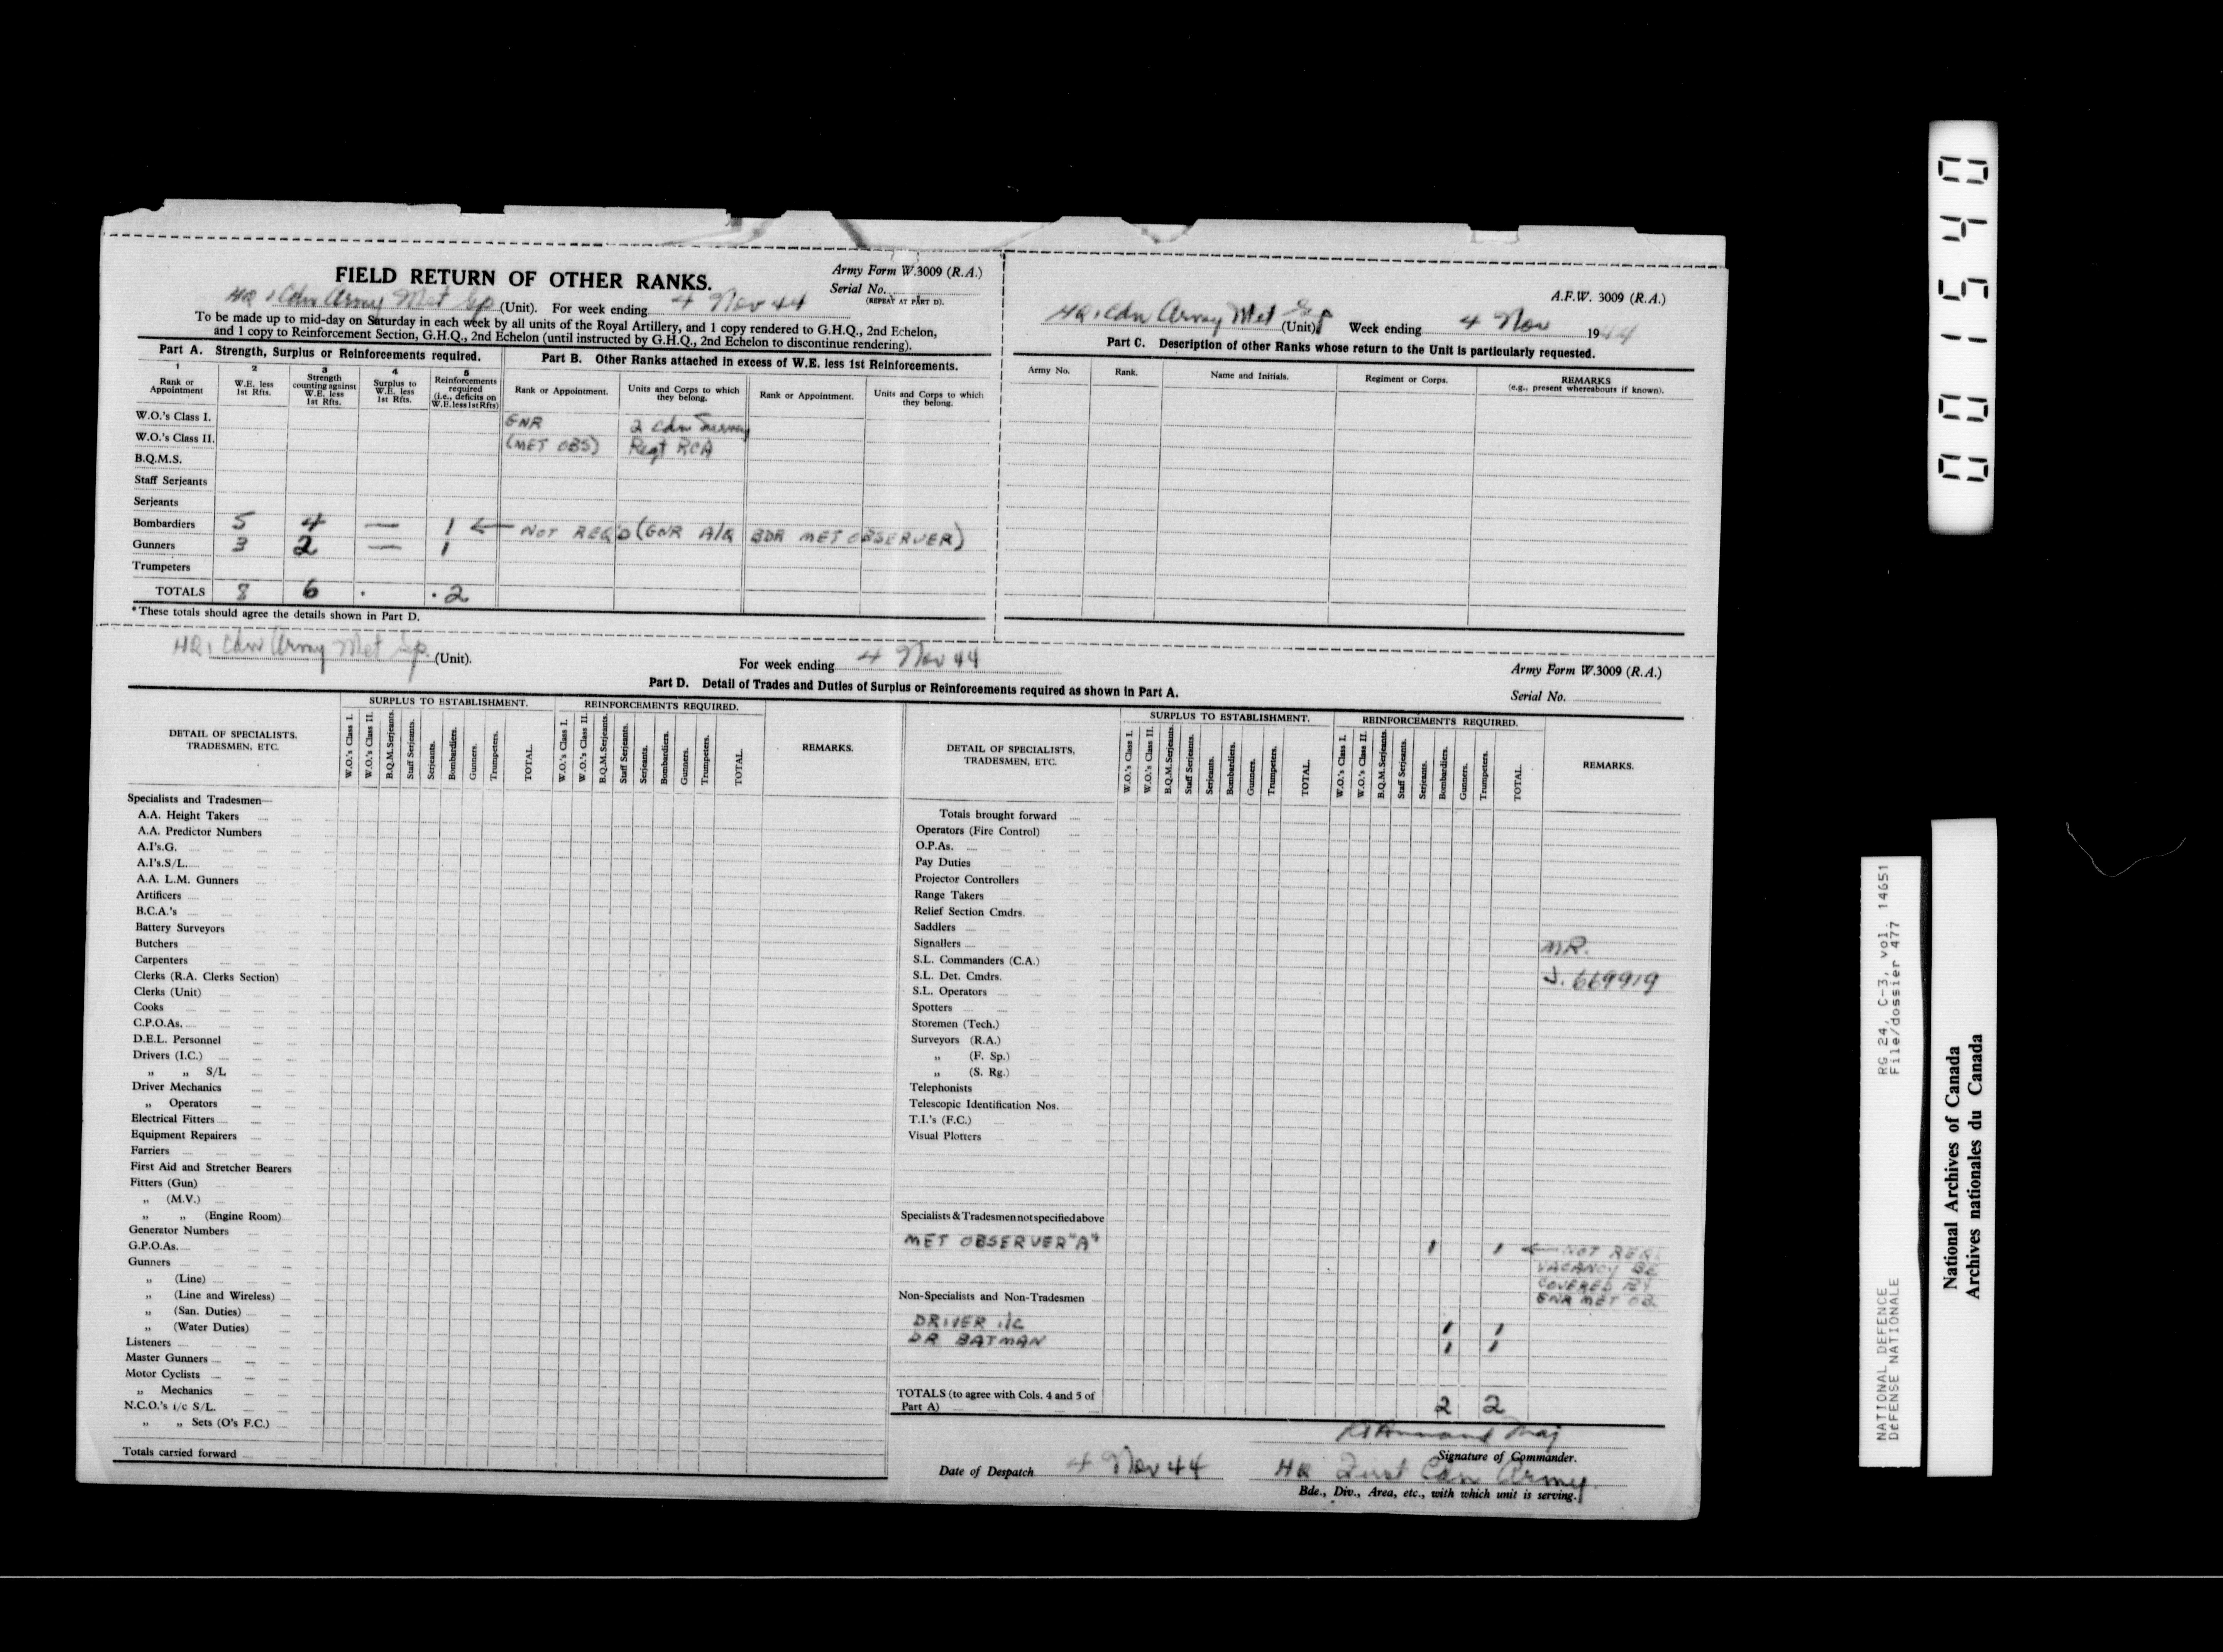 FIELD RETURN OF OTHER RANKS.
Army Form W.3009 (R.A.)
Serial No.
(REPEAT AT PART D).
HQ 1 Cdn Army Met Gp (Unit). For week ending 4 Nov 44
To be made up to mid-day on Saturday in each week by all units of the Royal Artillery, and 1 copy rendered to G.H.Q., 2nd Echelon,
and 1 copy to Reinforcement Section, G.H.Q., 2nd Echelon (until instructed by G.H.Q., 2nd Echelon to discontinue rendering).
Part A. Strength, Surplus or Reinforcements required.
1 2 3 4 5
Rank or Appointment
W.E. less 1st Rfts.
Strength counting against W.E. less 1st Rfts.
Surplus to W.E. less 1st Rfts.
Reinforcements required (i.e., deficits on W.E. less 1st Rfts)
W.O.'s Class I.
W.O.'s Class II.
B.Q.M.S.
Staff Serjeants
Serjeants
Bombardiers 5 4 — 1
Gunners 3 2 — 1
Trumpeters
TOTALS 8 6 . . 2
*These totals should agree the details shown in Part D.
Part B. Other Ranks attached in excess of W.E. less 1st Reinforcements.
Rank or Appointment. Units and Corps to which they belong. Rank or Appointment. Units and Corps to which they belong.
GNR 2 Cdn Survey
(MET OBS) Regt RCA
← NOT REQ'D (GNR A/Q BDR MET OBSERVER)
A.F.W. 3009 (R.A.)
HQ 1 Cdn Army Met Gp (Unit) Week ending 4 Nov 1944
Part C. Description of other Ranks whose return to the Unit is particularly requested.
Army No. Rank. Name and Initials. Regiment or Corps. REMARKS
(e.g., present whereabouts if known).
HQ 1 Cdn Army Met Gp. (Unit).
For week ending 4 Nov 44
Army Form W.3009 (R.A.)
Part D. Detail of Trades and Duties of Surplus or Reinforcements required as shown in Part A.
Serial No.
DETAIL OF SPECIALISTS, TRADESMEN, ETC.
SURPLUS TO ESTABLISHMENT.
W.O.'s Class I. W.O.'s Class II. B.Q.M.Serjeants. Staff Serjeants. Serjeants. Bombardiers. Gunners. Trumpeters. TOTAL.
REINFORCEMENTS REQUIRED.
W.O.'s Class I. W.O.'s Class II. B.Q.M.Serjeants. Staff Serjeants. Serjeants. Bombardiers. Gunners. Trumpeters. TOTAL.
REMARKS.
Specialists and Tradesmen—
A.A. Height Takers
A.A. Predictor Numbers
A.I's.G.
A.I's.S/L.
A.A. L.M. Gunners
Artificers
B.C.A.'s
Battery Surveyors
Butchers
Carpenters
Clerks (R.A. Clerks Section)
Clerks (Unit)
Cooks
C.P.O.As.
D.E.L. Personnel
Drivers (I.C.)
„ „ S/L
Driver Mechanics
„ Operators
Electrical Fitters
Equipment Repairers
Farriers
First Aid and Stretcher Bearers
Fitters (Gun)
„ (M.V.)
„ „ (Engine Room)
Generator Numbers
G.P.O.As.
Gunners
„ (Line)
„ (Line and Wireless)
„ (San. Duties)
„ (Water Duties)
Listeners
Master Gunners
Motor Cyclists
„ Mechanics
N.C.O.'s i/c S/L.
„ „ Sets (O's F.C.)
Totals carried forward
DETAIL OF SPECIALISTS, TRADESMEN, ETC.
SURPLUS TO ESTABLISHMENT.
W.O.'s Class I. W.O.'s Class II. B.Q.M.Serjeants. Staff Serjeants. Serjeants. Bombardiers. Gunners. Trumpeters. TOTAL.
REINFORCEMENTS REQUIRED.
W.O.'s Class I. W.O.'s Class II. B.Q.M.Serjeants. Staff Serjeants. Serjeants. Bombardiers. Gunners. Trumpeters. TOTAL.
REMARKS.
Totals brought forward
Operators (Fire Control)
O.P.As.
Pay Duties
Projector Controllers
Range Takers
Relief Section Cmdrs.
Saddlers
Signallers MR.
S.L. Commanders (C.A.)
S.L. Det. Cmdrs. J. 669919
S.L. Operators
Spotters
Storemen (Tech.)
Surveyors (R.A.)
„ (F. Sp.)
„ (S. Rg.)
Telephonists
Telescopic Identification Nos.
T.I.'s (F.C.)
Visual Plotters
Specialists & Tradesmen not specified above
MET OBSERVER "A" 1 1 ← NOT REQ.
VACANCY BE
COVERED BY
GNR MET OB.
Non-Specialists and Non-Tradesmen
DRIVER i/c 1 1
DR BATMAN 1 1
TOTALS (to agree with Cols. 4 and 5 of Part A) 2 2
Maj
Signature of Commander.
Date of Despatch 4 Nov 44
HQ First Cdn Army
Bde., Div., Area, etc., with which unit is serving.
001540
RG 24, C-3, vol. 14651
File/dossier 477
NATIONAL DEFENCE
DÉFENSE NATIONALE
National Archives of Canada
Archives nationales du Canada